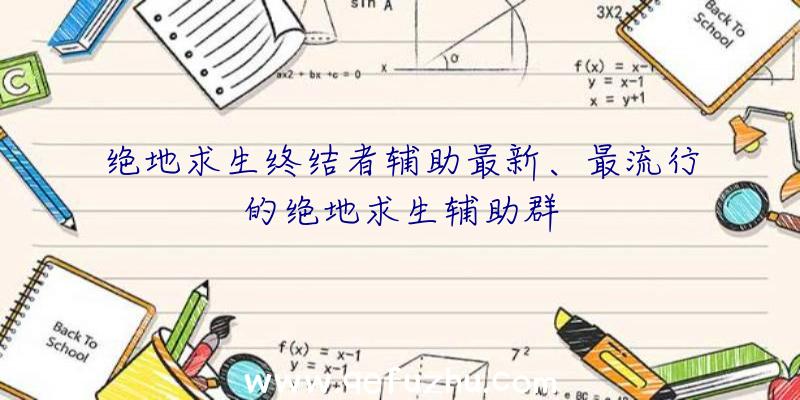 sin A
3X2
Back To
School
C
ax2 + bx +c = 0
x
α
f(x) = x-1
y = x-1
x = y+1
绝地求生终结者辅助最新、最流行
的绝地求生辅助群
Back To
School
f(x) = x-1
y = x-1
7²